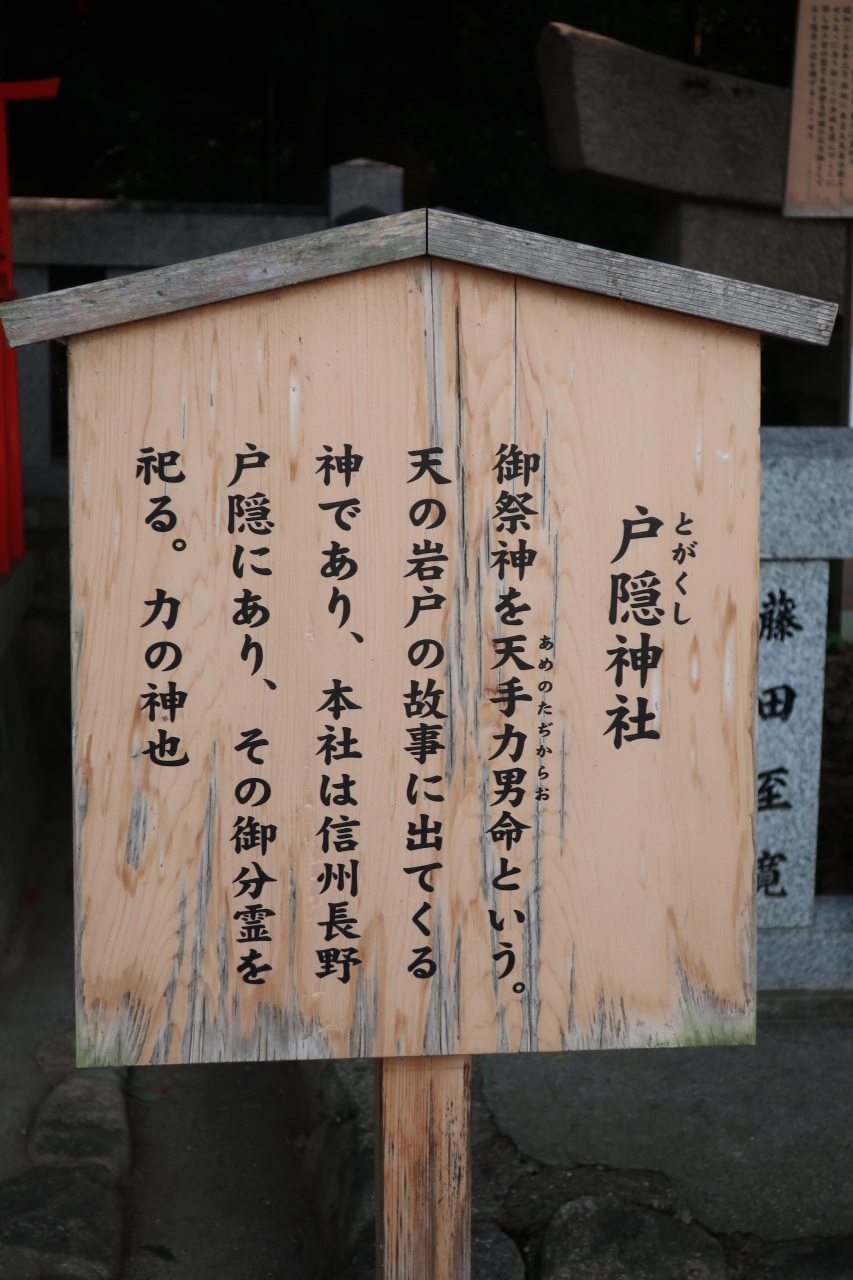 とがくし
戸隠神社
あめのたぢからお
御祭神を天手力男命という。
天の岩戸の故事に出てくる
神であり、本社は信州長野
戸隠にあり、その御分霊を
祀る。力の神也
藤田至寛